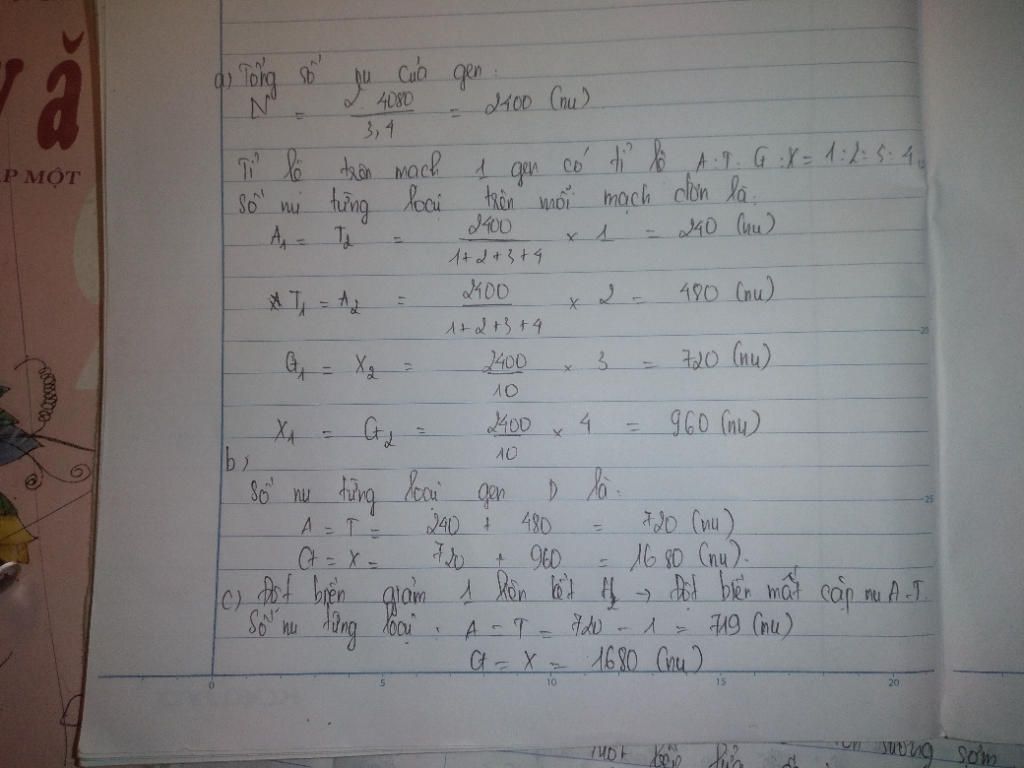 Vă
ẬP MỘT
a) Tổng số nu của gen:
N = 2 . 4080 / 3,4 = 2400 (nu)
Tỉ lệ trên mạch 1 gen có tỉ lệ A : T : G : X = 1 : 2 : 3 : 4
Số nu từng loại trên mỗi mạch đơn là:
A₁ = T₂ = 2400 / 1+2+3+4 × 1 = 240 (nu)
T₁ = A₂ = 2400 / 1+2+3+4 × 2 = 480 (nu)
G₁ = X₂ = 2400 / 10 × 3 = 720 (nu)
X₁ = G₂ = 2400 / 10 × 4 = 960 (nu)
b)
Số nu từng loại gen D là:
A = T = 240 + 480 = 720 (nu)
G = X = 720 + 960 = 1680 (nu).
c) Đột biến giảm 1 liên kết H₂ → Đột biến mất cặp nu A-T.
Số nu từng loại: A = T = 720 - 1 = 719 (nu)
G = X = 1680 (nu)
0 5 10 15 20
25
sương sớm